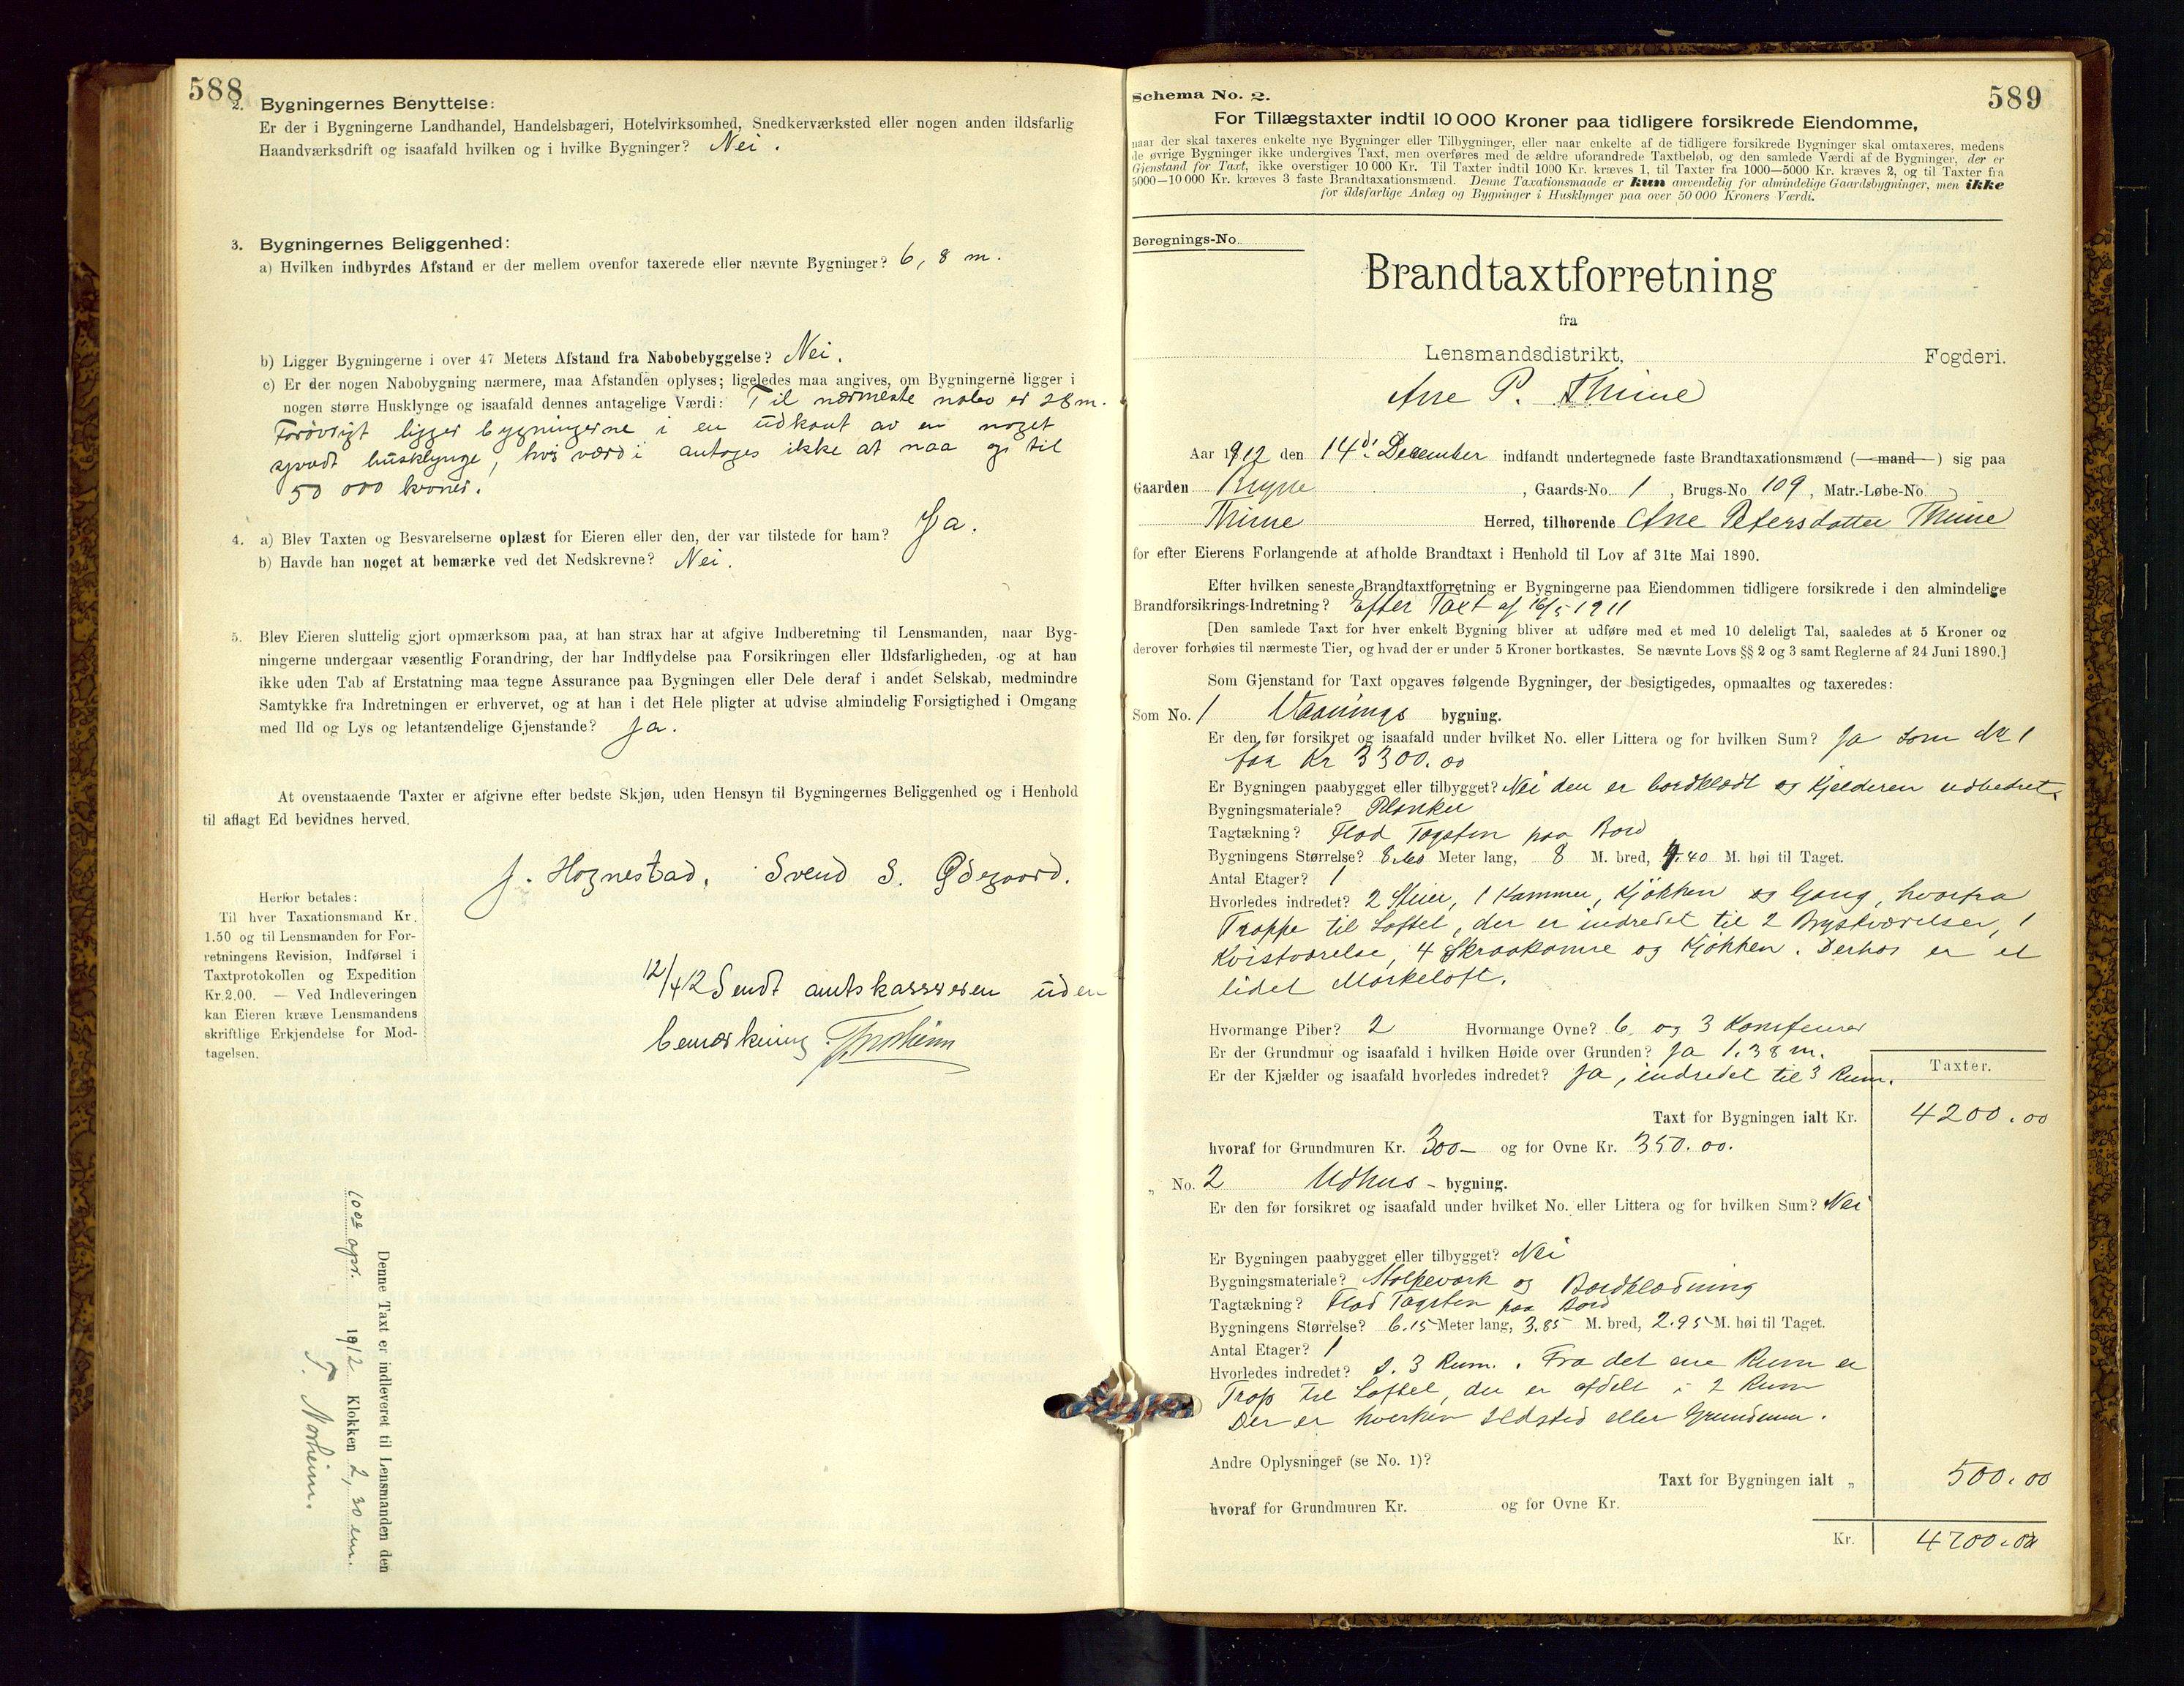 588
2. Bygningernes Benyttelse:
Er der i Bygningerne Landhandel, Handelsbageri, Hotelvirksomhed, Snedkerværksted eller nogen anden ildsfarlig
Haandværksdrift og isaafald hvilken og i hvilke Bygninger? Nei.
3. Bygningernes Beliggenhed:
a) Hvilken indbyrdes Afstand er der mellem ovenfor taxerede eller nævnte Bygninger? 6,8 m.
b) Ligger Bygningerne i over 47 Meters Afstand fra Nabobebyggelse? Nei.
c) Er der nogen Nabobygning nærmere, maa Afstanden oplyses; ligeledes maa angives, om Bygningerne ligger i
nogen større Husklynge og isaafald dennes antagelige Værdi: Til nærmeste nabo er 28 m.
Forøvrigt ligger bygningerne i en udkant av en noget
spredt husklynge, hvis værdi antages ikke at naa op til
50 000 kroner.
4. a) Blev Taxten og Besvarelserne oplæst for Eieren eller den, der var tilstede for ham? Ja.
b) Havde han noget at bemærke ved det Nedskrevne? Nei.
5. Blev Eieren sluttelig gjort opmærksom paa, at han strax har at afgive Indberetning til Lensmanden, naar Byg-
ningerne undergaar væsentlig Forandring, der har Indflydelse paa Forsikringen eller Ildsfarligheden, og at han
ikke uden Tab af Erstatning maa tegne Assurance paa Bygningen eller Dele deraf i andet Selskab, medmindre
Samtykke fra Indretningen er erhvervet, og at han i det Hele pligter at udvise almindelig Forsigtighed i Omgang
med Ild og Lys og letantændelige Gjenstande? Ja.
At ovenstaaende Taxter er afgivne efter bedste Skjøn, uden Hensyn til Bygningernes Beliggenhed og i Henhold
til aflagt Ed bevidnes herved.
J. Hognestad. Svend S. Ødegaard.
Herfor betales:
Til hver Taxationsmand Kr.
1.50 og til Lensmanden for For-
retningens Revision, Indførsel i
Taxtprotokollen og Expedition
Kr.2.00. — Ved Indleveringen
kan Eieren kræve Lensmandens
skriftlige Erkjendelse for Mod-
tagelsen.
12/4 12 Sendt amtskassereren uden
bemærkning
Denne Taxt er indleveret til Lensmanden den
10de apr. 1912 Klokken 2,30 em.
T. Norheim.
589
Schema No. 2.
For Tillægstaxter indtil 10 000 Kroner paa tidligere forsikrede Eiendomme,
naar der skal taxeres enkelte nye Bygninger eller Tilbygninger, eller naar enkelte af de tidligere forsikrede Bygninger skal omtaxeres, medens
de øvrige Bygninger ikke undergives Taxt, men overføres med de ældre uforandrede Taxtbeløb, og den samlede Værdi af de Bygninger, der er
Gjenstand for Taxt, ikke overstiger 10 000 Kr. Til Taxter indtil 1000 Kr. kræves 1, til Taxter fra 1000—5000 Kr. kræves 2, og til Taxter fra
5000—10 000 Kr. kræves 3 faste Brandtaxationsmænd. Denne Taxationsmaade er kun anvendelig for almindelige Gaardsbygninger, men ikke
for ildsfarlige Anlæg og Bygninger i Husklynger paa over 50 000 Kroners Værdi.
Beregnings-No.
Brandtaxtforretning
fra
Lensmandsdistrikt, Fogderi.
Ane P. Thime
Aar 1912 den 14de December indfandt undertegnede faste Brandtaxationsmænd (mand) sig paa
Gaarden Bryne, Gaards-No. 1, Brugs-No. 109, Matr.-Løbe-No.
Thime Herred, tilhørende Ane Petersdatter Thime
for efter Eierens Forlangende at afholde Brandtaxt i Henhold til Lov af 31te Mai 1890.
Efter hvilken seneste Brandtaxtforretning er Bygningerne paa Eiendommen tidligere forsikrede i den almindelige
Brandforsikrings-Indretning? Efter Taxt af 16/5 1911
[Den samlede Taxt for hver enkelt Bygning bliver at udføre med et med 10 deleligt Tal, saaledes at 5 Kroner og
derover forhøies til nærmeste Tier, og hvad der er under 5 Kroner bortkastes. Se nævnte Lovs §§ 2 og 3 samt Reglerne af 24 Juni 1890.]
Som Gjenstand for Taxt opgaves følgende Bygninger, der besigtigedes, opmaaltes og taxeredes:
Som No. 1 Vaanings bygning.
Er den før forsikret og isaafald under hvilket No. eller Littera og for hvilken Sum? Ja som No 1
for Kr 3300.00
Er Bygningen paabygget eller tilbygget? Nei den er bordklædt og Kjelderen udbedret.
Bygningsmateriale? Planker
Tagtækning? Flad Tagsten paa Bord
Bygningens Størrelse? 8.60 Meter lang, 8 M. bred, 4.40 M. høi til Taget.
Antal Etager? 1
Hvorledes indredet? 2 Stuer, 1 Kammer, Kjøkken og Gang, hvorfra
Trappe til Loftet, der er indredet til 2 Brystværelser, 1
Kvistværelse, 4 Skraakamre og Kjøkken. Derhos er et
lidet Mørkeloft.
Hvormange Piber? 2 Hvormange Ovne? 6 og 3 Komfeurer
Er der Grundmur og isaafald i hvilken Høide over Grunden? Ja 1.38 m.
Er der Kjælder og isaafald hvorledes indredet? Ja, indredet til 3 Rum.
Taxter.
Taxt for Bygningen ialt Kr. 4200.00
hvoraf for Grundmuren Kr. 300- og for Ovne Kr. 350.00.
„ No. 2 Udhus - bygning.
Er den før forsikret og isaafald under hvilket No. eller Littera og for hvilken Sum? Nei
Er Bygningen paabygget eller tilbygget? Nei
Bygningsmateriale? Stolpeværk og Bordklædning
Tagtækning? Flad Tagsten paa Bord
Bygningens Størrelse? 6.15 Meter lang, 3.85 M. bred, 2.95 M. høi til Taget.
Antal Etager? 1
Hvorledes indredet? 3 Rum. Fra det ene Rum er
Trap til Loftet, der er afdelt i 2 Rum
Der er hverken Ildsted eller Grundmur.
Andre Oplysninger (se No. 1)?
Taxt for Bygningen ialt „ 500.00
hvoraf for Grundmuren Kr. og for Ovne Kr.
Kr. 4700.00